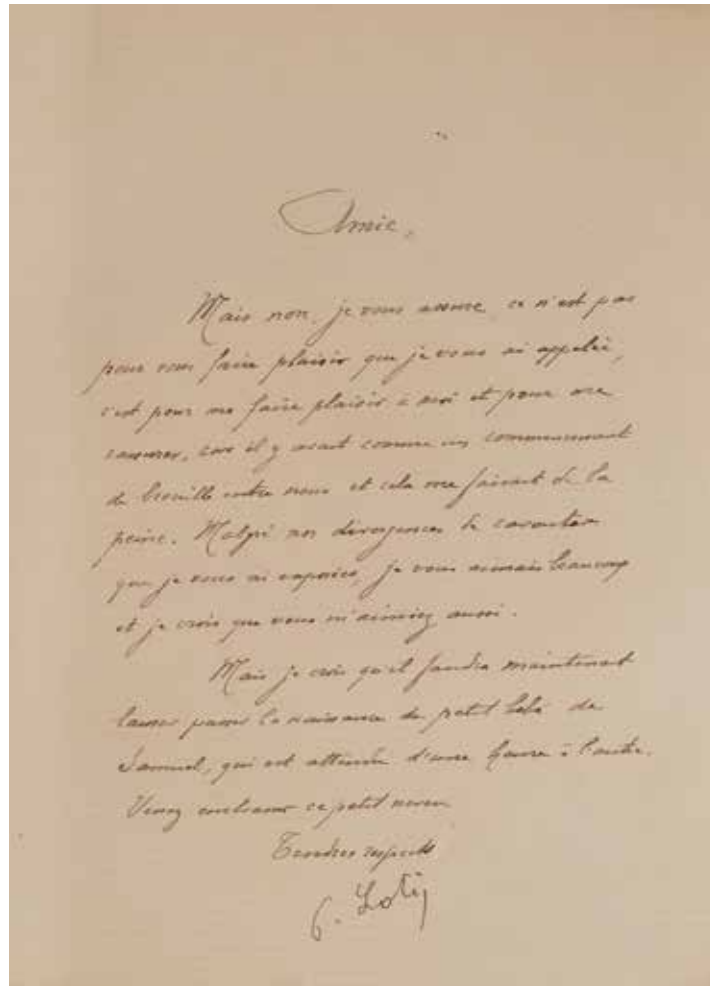 Amie,
Mais non, je vous assure, ce n'est pas
pour vous faire plaisir que je vous ai appelée,
c'est pour me faire plaisir à moi et pour me
rassurer, car il y avait comme un commencement
de brouille entre nous et cela me faisait de la
peine. Malgré nos divergences de caractère
que je vous ai exposées, je vous aimais beaucoup
et je crois que vous m'aimiez aussi.
Mais je crois qu'il faudra maintenant
laisser passer la naissance du petit bébé de
Samuel, qui est attendu d'une heure à l'autre.
Venez embrasser ce petit neveu
Tendres respects
P. Loti